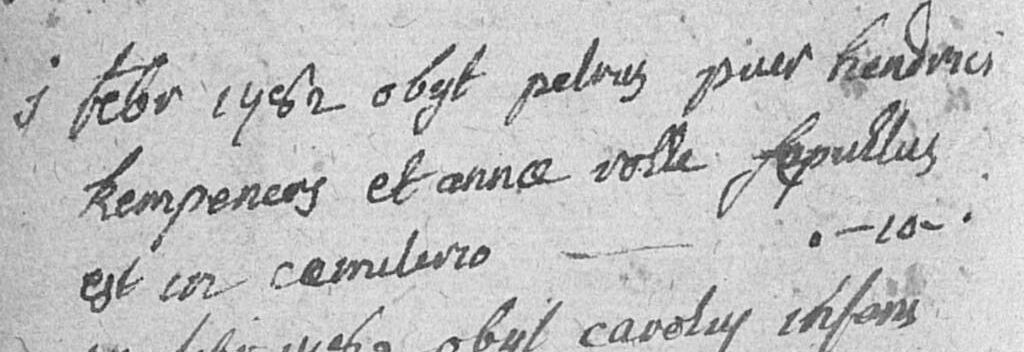 j febr 1762 obyt petrus puer hendrici
kempeners et annæ volle sepultus
est in cæmiterio — . -10- .
febr 1762 obyt carolus infans